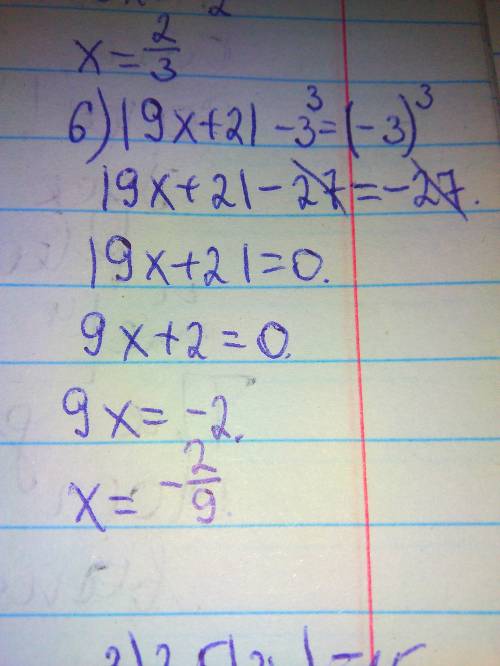 x = 2/3
б) |9x+2| - 3³ = (-3)³
|9x+2| - 27 = -27.
|9x+2| = 0.
9x+2 = 0.
9x = -2.
x = -2/9.